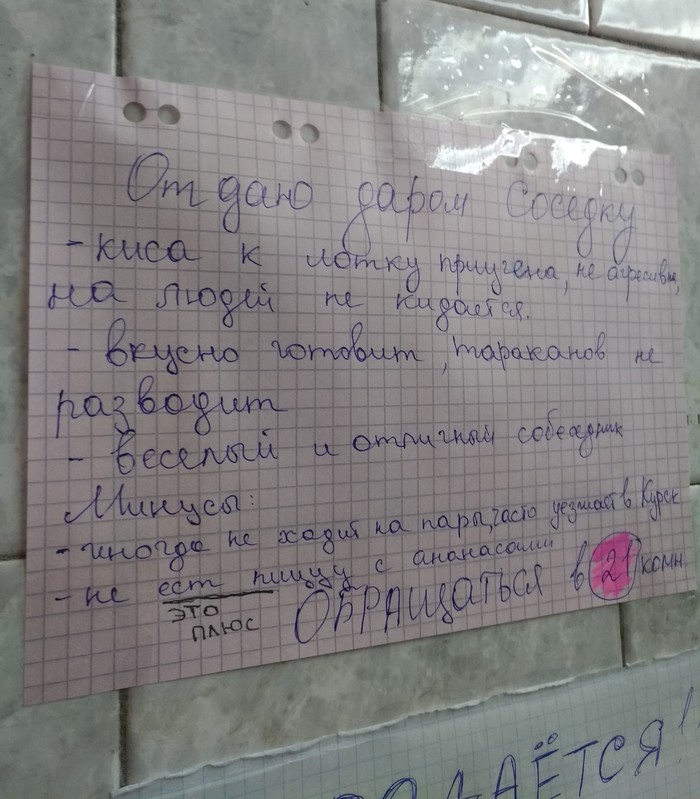 Отдаю даром соседку
- киса к лотку приучена, не агресивна,
на людей не кидается.
- вкусно готовит, тараканов не
разводит
- веселый и отличный собеседник
Минусы:
- иногда не ходит на пары, часто уезжает в Курск
- не ест пиццу с ананасами
ЭТО
ПЛЮС
ОБРАЩАТЬСЯ в 21 комн
ДАЁТСЯ!